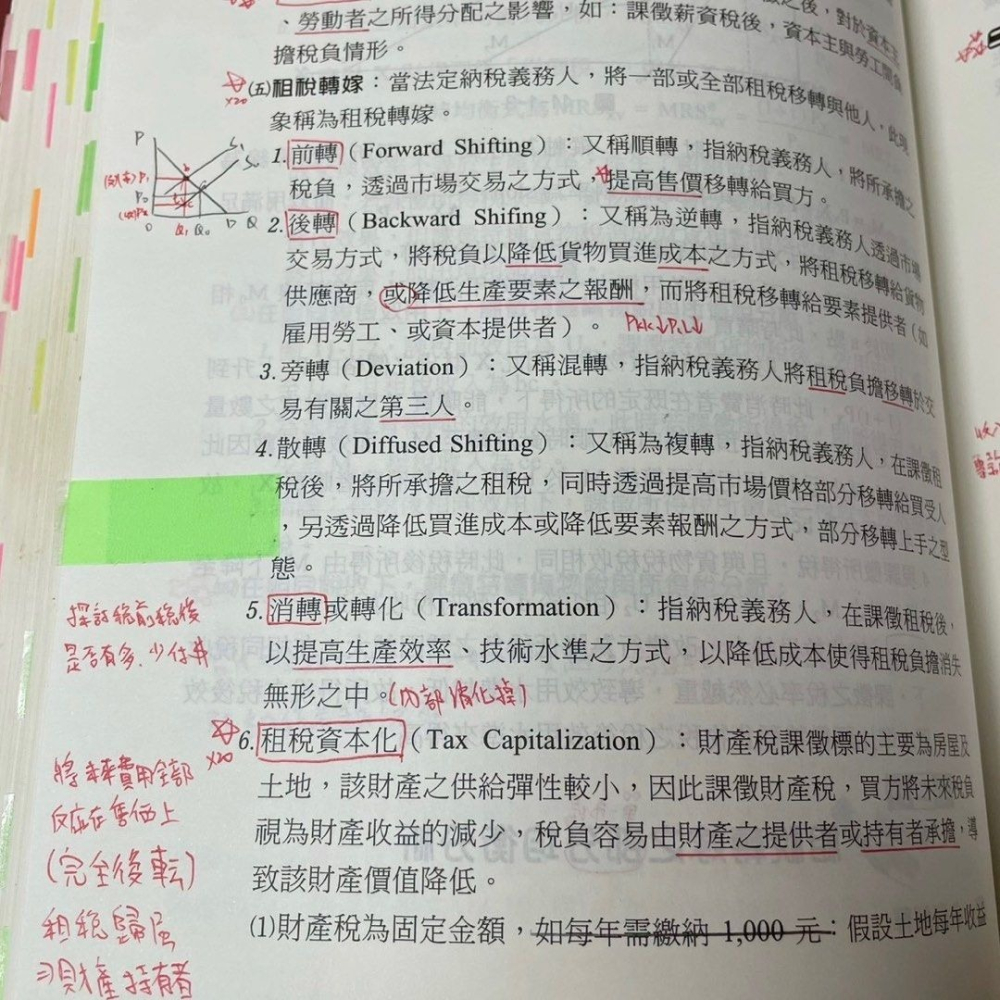 、勞動者之所得分配之影響，如：課徵薪資稅後，資本主與勞工間負
擔稅負情形。
x20
(五)租稅轉嫁：當法定納稅義務人，將一部或全部租稅移轉與他人，此現
象稱為租稅轉嫁。
1.前轉（Forward Shifting）：又稱順轉，指納稅義務人，將所承擔之
稅負，透過市場交易之方式，提高售價移轉給買方。
P
S₁
S₀
P₁
P₀
P₂
O Q₁ Q₀ D Q
2.後轉（Backward Shifing）：又稱為逆轉，指納稅義務人透過市場
交易方式，將稅負以降低貨物買進成本之方式，將租稅移轉給貨物
供應商，或降低生產要素之報酬，而將租稅移轉給要素提供者（如
雇用勞工、或資本提供者）。
3.旁轉（Deviation）：又稱混轉，指納稅義務人將租稅負擔移轉於交
易有關之第三人。
4.散轉（Diffused Shifting）：又稱為複轉，指納稅義務人，在課徵租
稅後，將所承擔之租稅，同時透過提高市場價格部分移轉給買受人
，另透過降低買進成本或降低要素報酬之方式，部分移轉上手之型
態。
探討稅前稅後
是否有多、少付錢
5.消轉或轉化（Transformation）：指納稅義務人，在課徵租稅後，
以提高生產效率、技術水準之方式，以降低成本使得租稅負擔消失
無形之中。(內部消化掉)
x20
6.租稅資本化（Tax Capitalization）：財產稅課徵標的主要為房屋及
土地，該財產之供給彈性較小，因此課徵財產稅，買方將未來稅負
視為財產收益的減少，稅負容易由財產之提供者或持有者承擔，導
致該財產價值降低。
將未來費用全部
反應在售価上
(完全後転)
租稅歸屬
財產持有者
(1)財產稅為固定金額，如每年需繳納 1,000 元：假設土地每年收益